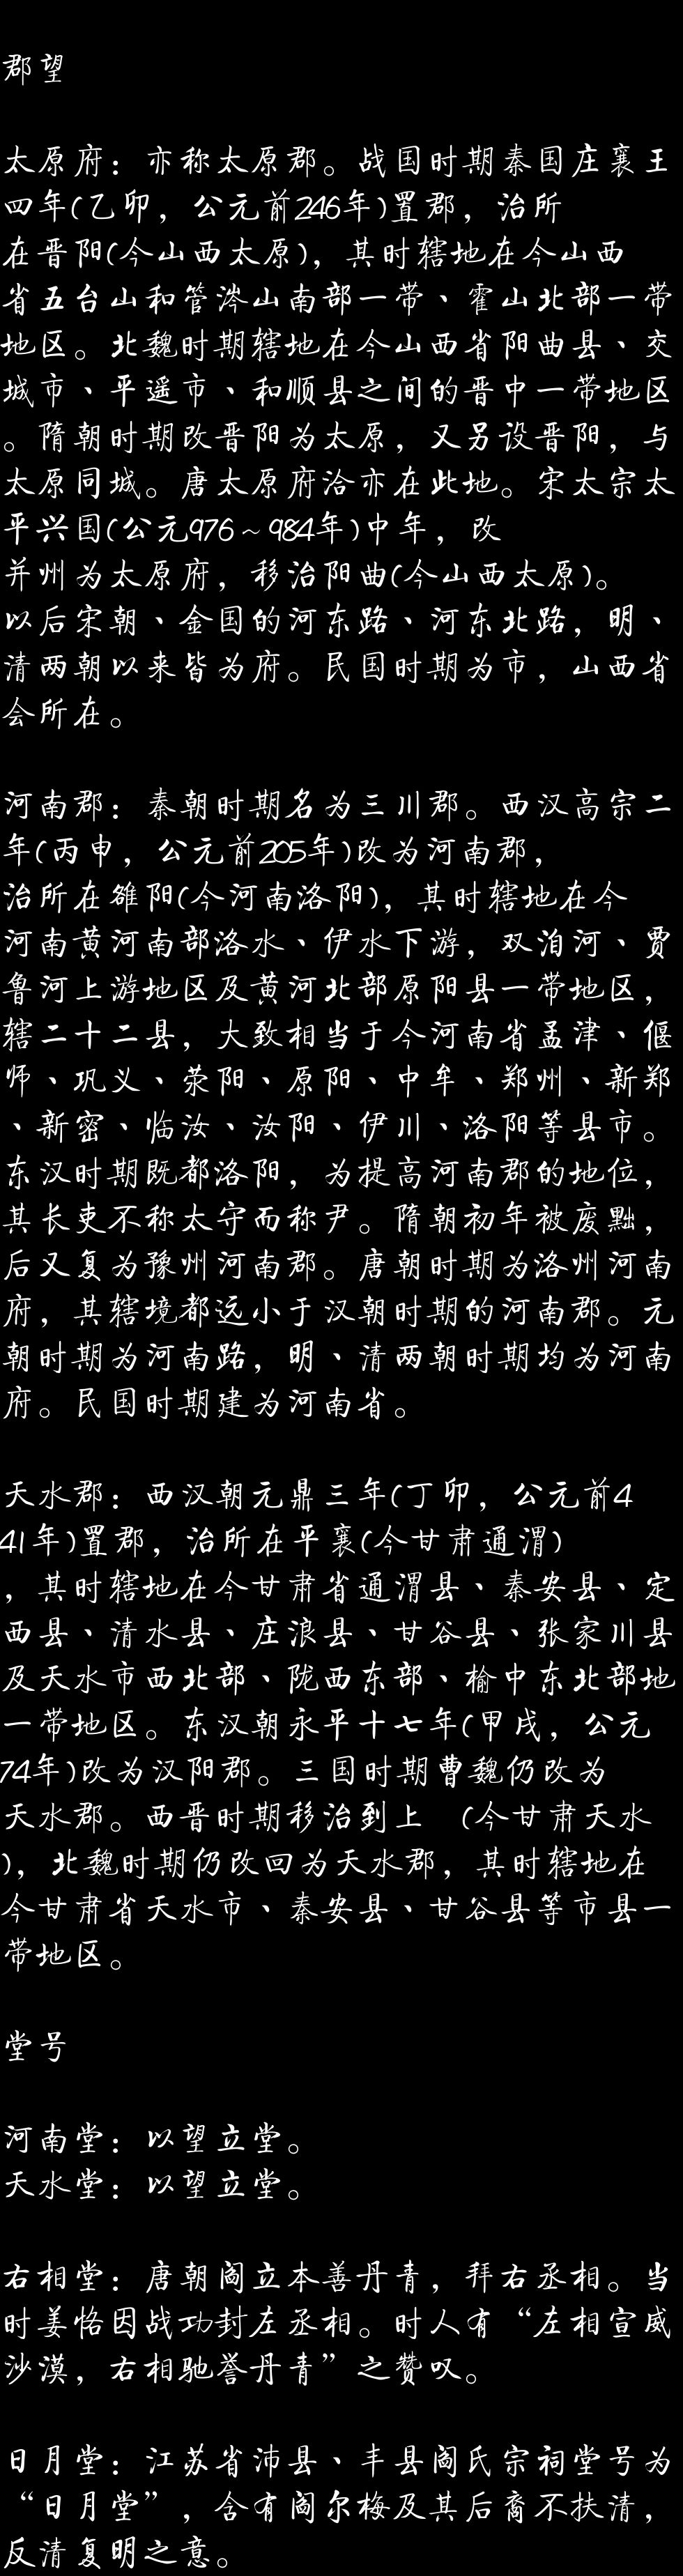 郡望
太原府：亦称太原郡。战国时期秦国庄襄王
四年(乙卯，公元前246年)置郡，治所
在晋阳(今山西太原)，其时辖地在今山西
省五台山和管涔山南部一带、霍山北部一带
地区。北魏时期辖地在今山西省阳曲县、交
城市、平遥市、和顺县之间的晋中一带地区
。隋朝时期改晋阳为太原，又另设晋阳，与
太原同城。唐太原府治亦在此地。宋太宗太
平兴国(公元976～984年)中年，改
并州为太原府，移治阳曲(今山西太原)。
以后宋朝、金国的河东路、河东北路，明、
清两朝以来皆为府。民国时期为市，山西省
会所在。
河南郡：秦朝时期名为三川郡。西汉高宗二
年(丙申，公元前205年)改为河南郡，
治所在雒阳(今河南洛阳)，其时辖地在今
河南黄河南部洛水、伊水下游，双洎河、贾
鲁河上游地区及黄河北部原阳县一带地区，
辖二十二县，大致相当于今河南省孟津、偃
师、巩义、荥阳、原阳、中牟、郑州、新郑
、新密、临汝、汝阳、伊川、洛阳等县市。
东汉时期既都洛阳，为提高河南郡的地位，
其长吏不称太守而称尹。隋朝初年被废黜，
后又复为豫州河南郡。唐朝时期为洛州河南
府，其辖境都远小于汉朝时期的河南郡。元
朝时期为河南路，明、清两朝时期均为河南
府。民国时期建为河南省。
天水郡：西汉朝元鼎三年(丁卯，公元前4
41年)置郡，治所在平襄(今甘肃通渭)
，其时辖地在今甘肃省通渭县、秦安县、定
西县、清水县、庄浪县、甘谷县、张家川县
及天水市西北部、陇西东部、榆中东北部地
一带地区。东汉朝永平十七年(甲戌，公元
74年)改为汉阳郡。三国时期曹魏仍改为
天水郡。西晋时期移治到上　(今甘肃天水
)，北魏时期仍改回为天水郡，其时辖地在
今甘肃省天水市、秦安县、甘谷县等市县一
带地区。
堂号
河南堂：以望立堂。
天水堂：以望立堂。
右相堂：唐朝阎立本善丹青，拜右丞相。当
时姜恪因战功封左丞相。时人有“左相宣威
沙漠，右相驰誉丹青”之赞叹。
日月堂：江苏省沛县、丰县阎氏宗祠堂号为
“日月堂”，含有阎尔梅及其后裔不扶清，
反清复明之意。